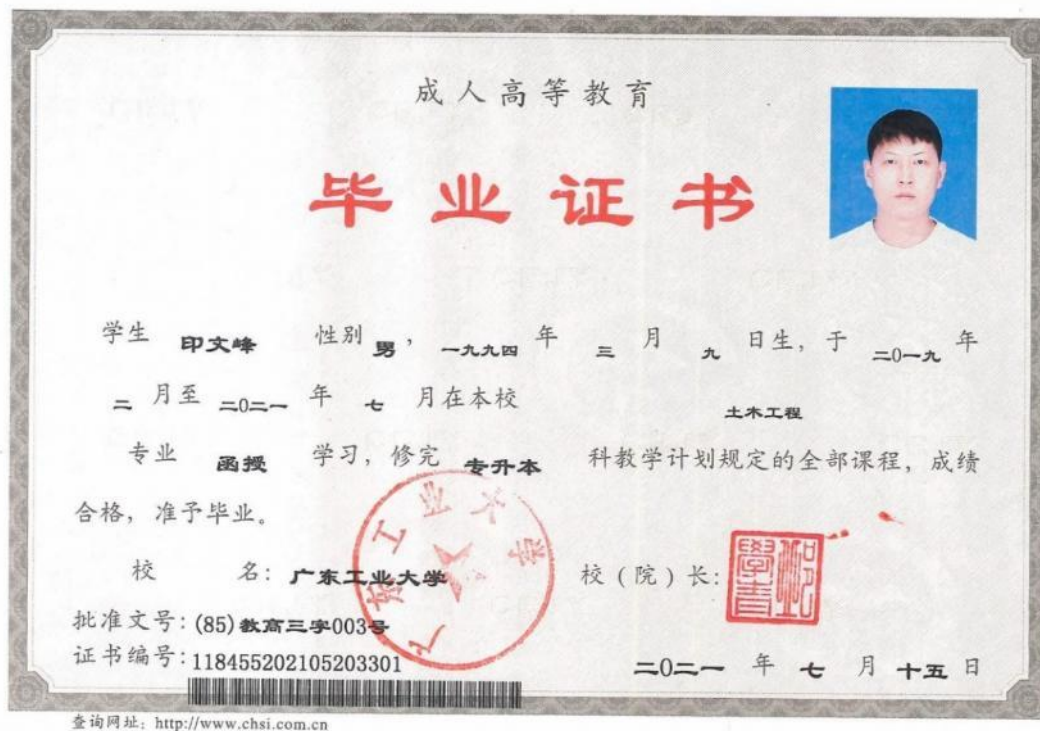 成人高等教育
毕业证书
学生 印文峰 性别 男, 一九九四 年 三 月 九 日生, 于 二0一九 年
二 月至 二0二一 年 七 月在本校 土木工程
专业 函授 学习, 修完 专升本 科教学计划规定的全部课程, 成绩
合格, 准予毕业。
校 名: 广东工业大学 校(院)长:
批准文号: (85)教高三字003号
证书编号: 118455202105203301
二0二一 年 七 月 十五 日
查询网址: http://www.chsi.com.cn
广东工业大学